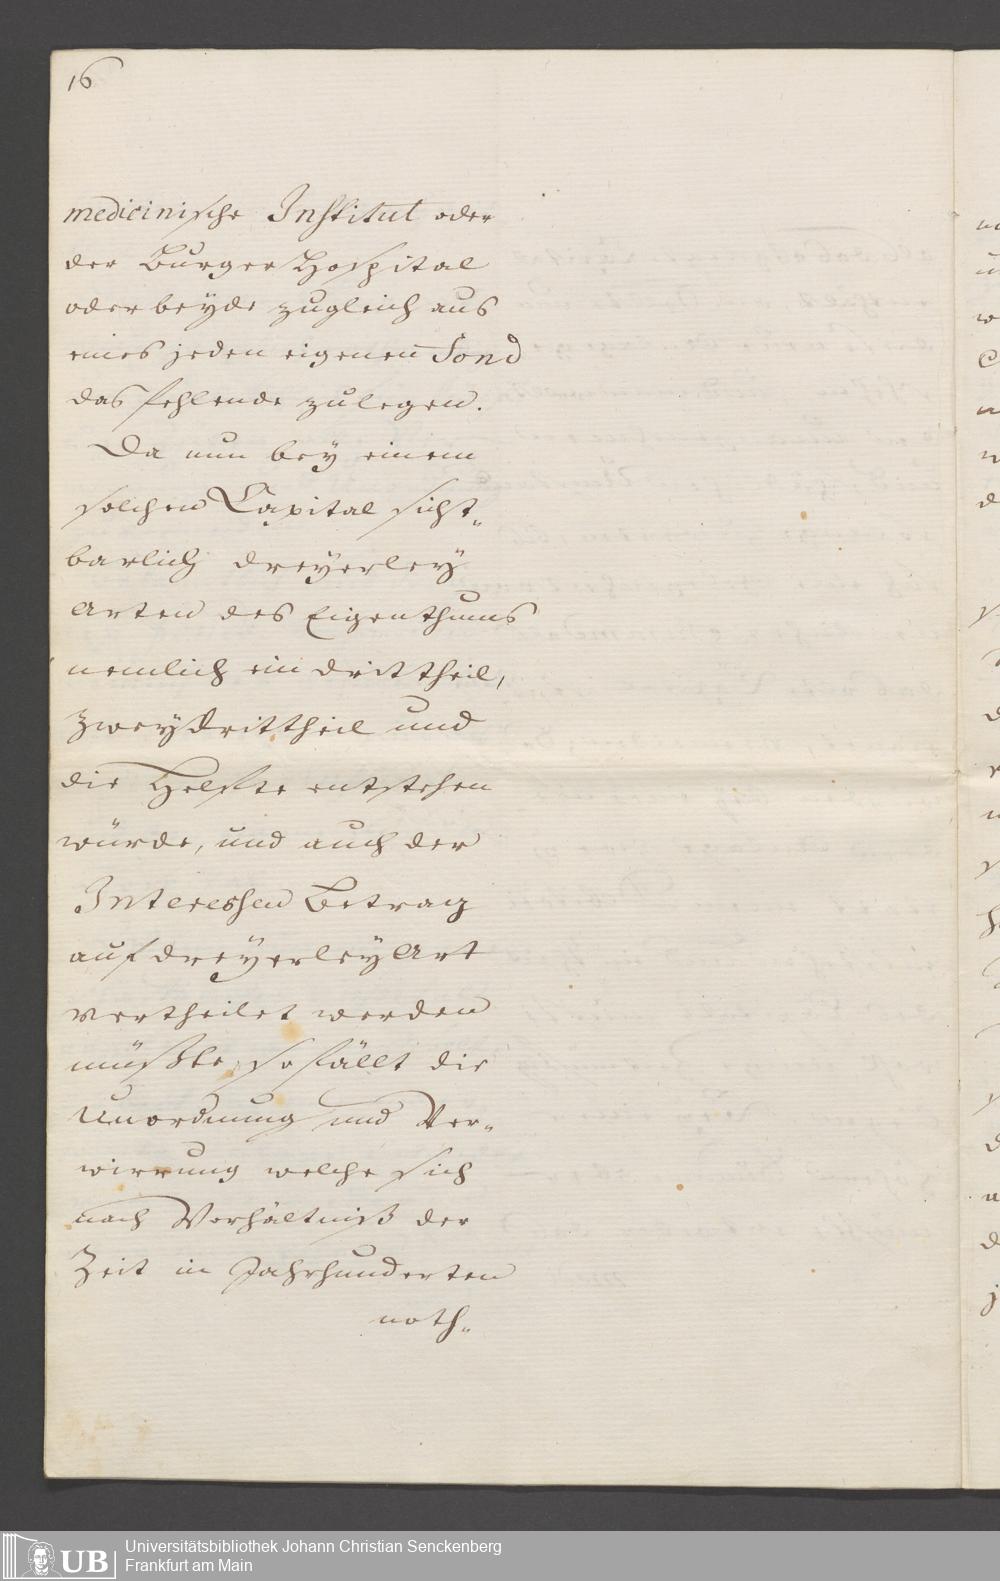 16
medicinische Institut oder
der Burger Hospital
oder beyde zugleich aus
eines jeden eigenen Fond
das fehlende zulegen.
Da nun bey einem
solchen Capital sicht„
barlich dreÿerleÿ
Arten des Eigenthums
nemlich ein drittheil,
zweÿdrittheil und
die Helffte entstehen
würde, und auch der
Interessen Betrag
auf dreÿerleÿ Art
vertheilet werden
müßte, so fällt die
Unordnung und Ver„
wirrung welche sich
nach Verhältniß der
Zeit in Jahrhunderten
noth„
UB
Universitätsbibliothek Johann Christian Senckenberg
Frankfurt am Main